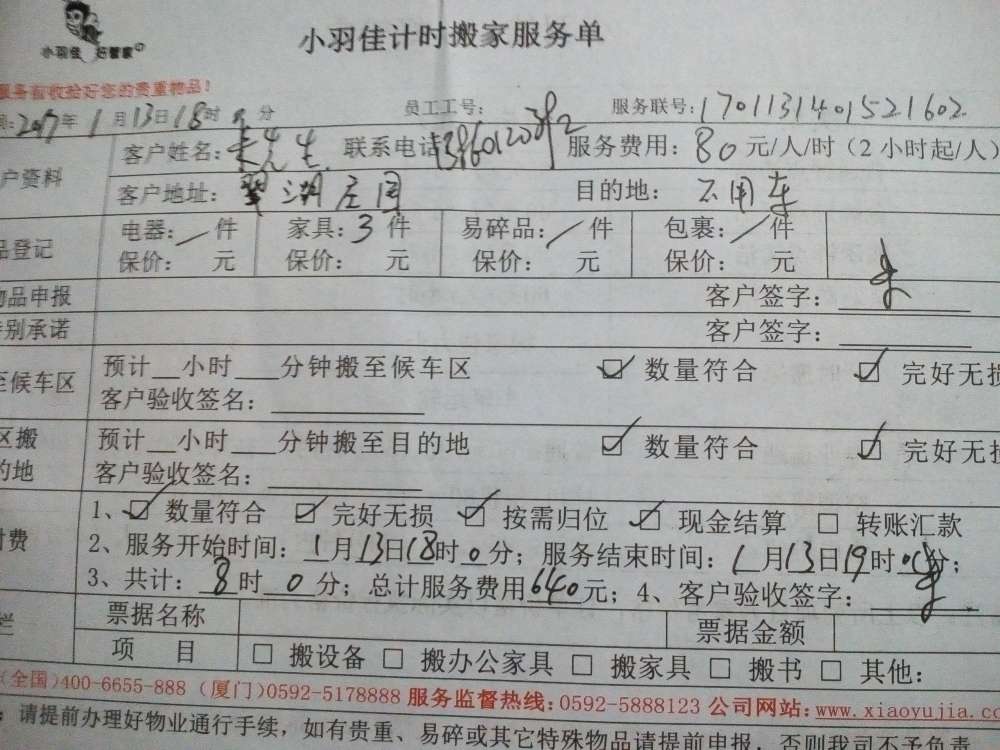 小羽佳 好管家
小羽佳计时搬家服务单
服务前收验好您的贵重物品!
间:2017年1月13日18时 分 员工工号: 服务联号:1701131401521602
户资料 客户姓名: 先生 联系电话: 服务费用:80元/人/时(2小时起/人)
客户地址:翠湖庄园 目的地:不用车
品登记 电器:/件 家具:3件 易碎品:/件 包裹:/件
保价: 元 保价: 元 保价: 元 保价: 元
物品申报 客户签字:
特别承诺 客户签字:
至候车区 预计__小时___分钟搬至候车区 ☑ 数量符合 ☑ 完好无损
客户验收签名:
区搬 预计__小时___分钟搬至目的地 ☑ 数量符合 ☑ 完好无损
的地 客户验收签名:
付费 1、☑ 数量符合 ☑ 完好无损 ☑ 按需归位 ☑ 现金结算 □ 转账汇款
2、服务开始时间:1月13日18时0分;服务结束时间:1月13日19时 分;
3、共计:8时0分;总计服务费用640元;4、客户验收签字:
栏 票据名称 票据金额
项 目 □ 搬设备 □ 搬办公家具 □ 搬家具 □ 搬书 □ 其他:
(全国)400-6655-888 (厦门)0592-5178888 服务监督热线:0592-5888123 公司网站:www.xiaoyujia.co
:请提前办理好物业通行手续,如有贵重、易碎或其它特殊物品请提前申报,否则我司不予负责